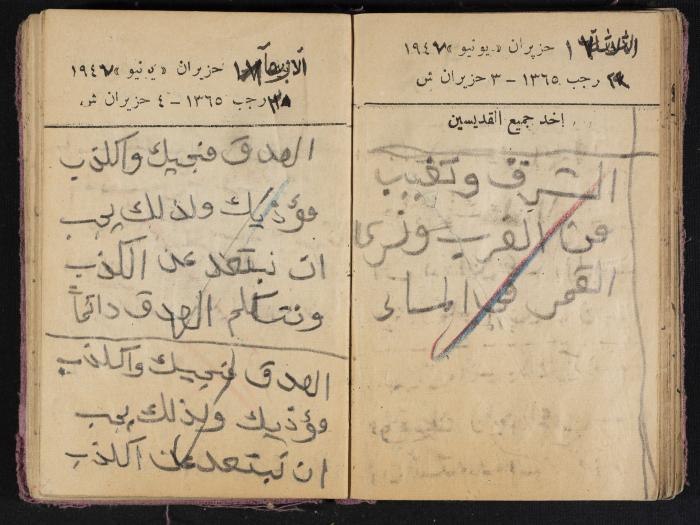 الثلاثاء ١٧ حزيران «يونيو» ١٩٤٧
رجب ١٣٦٥ – ٣ حزيران ش
احد جميع القديسين
الشرق وتغيب
من الغرب ونرى
القمر في المساء
الاربعاء ١٨ حزيران «يونيو» ١٩٤٧
رجب ١٣٦٥ – ٤ حزيران ش
الصدق منجيك والكذب
مؤذيك ولذلك يجب
ان نبتعد عن الكذب
ونتكلم الصدق دائماً
الصدق منجيك والكذب
مؤذيك ولذلك يجب
ان نبتعد عن الكذب